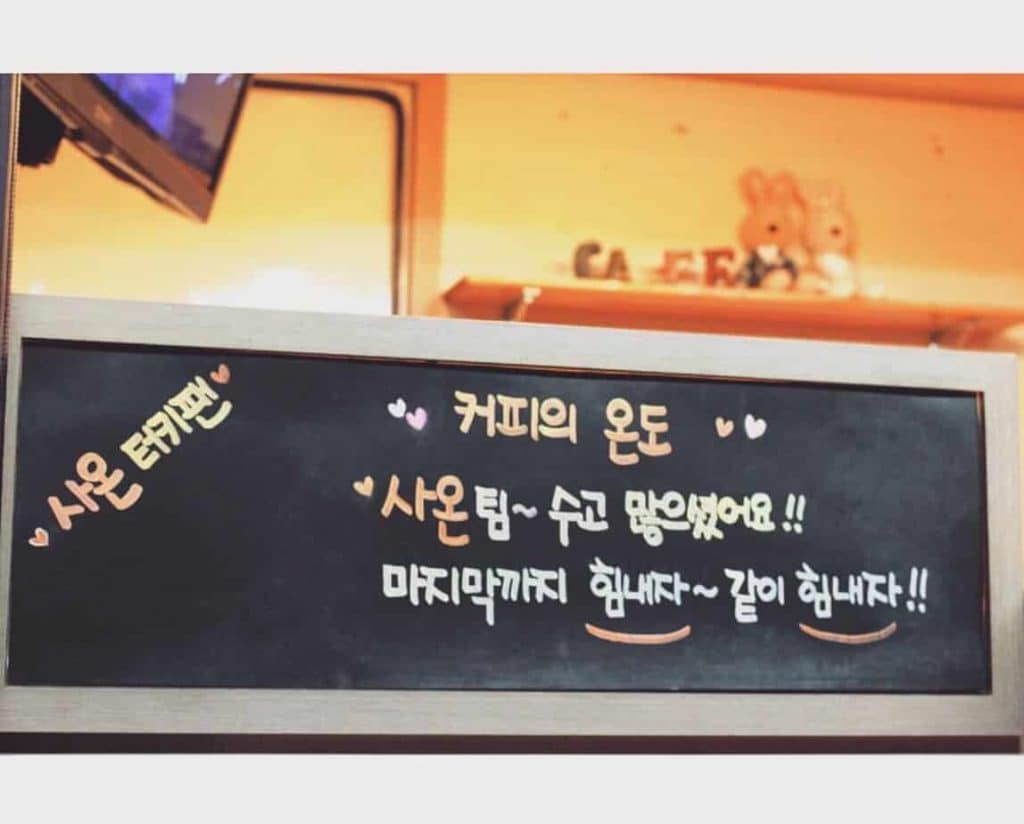 CAFE
사온 터키팬
커피의 온도
사온팀~ 수고 많으셨어요!!
마지막까지 힘내자~ 같이 힘내자!!